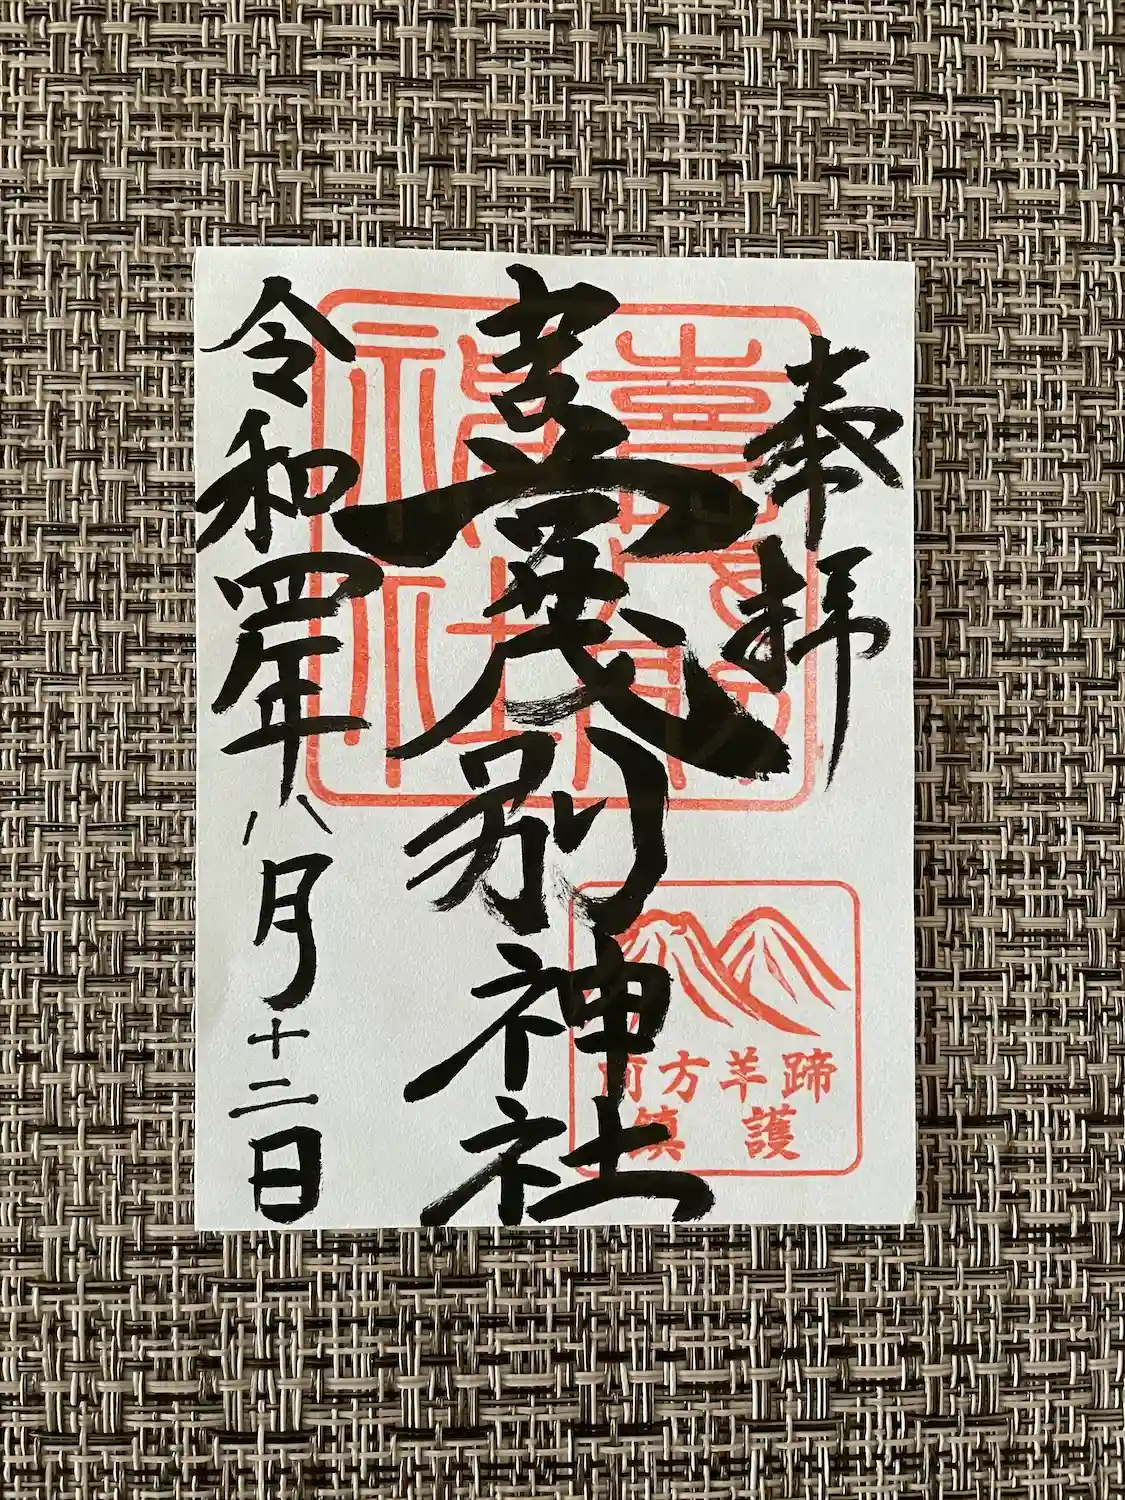 奉拝
喜茂別神社
令和四年八月十二日
喜茂別
神社
南方羊蹄
鎮護